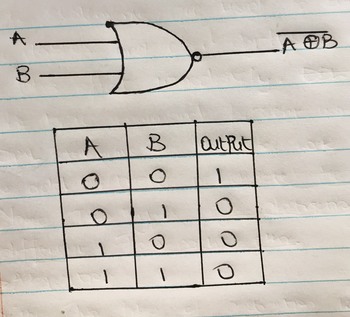 A
B
A ⊕ B
A B OUTPUT
0 0 1
0 1 0
1 0 0
1 1 0